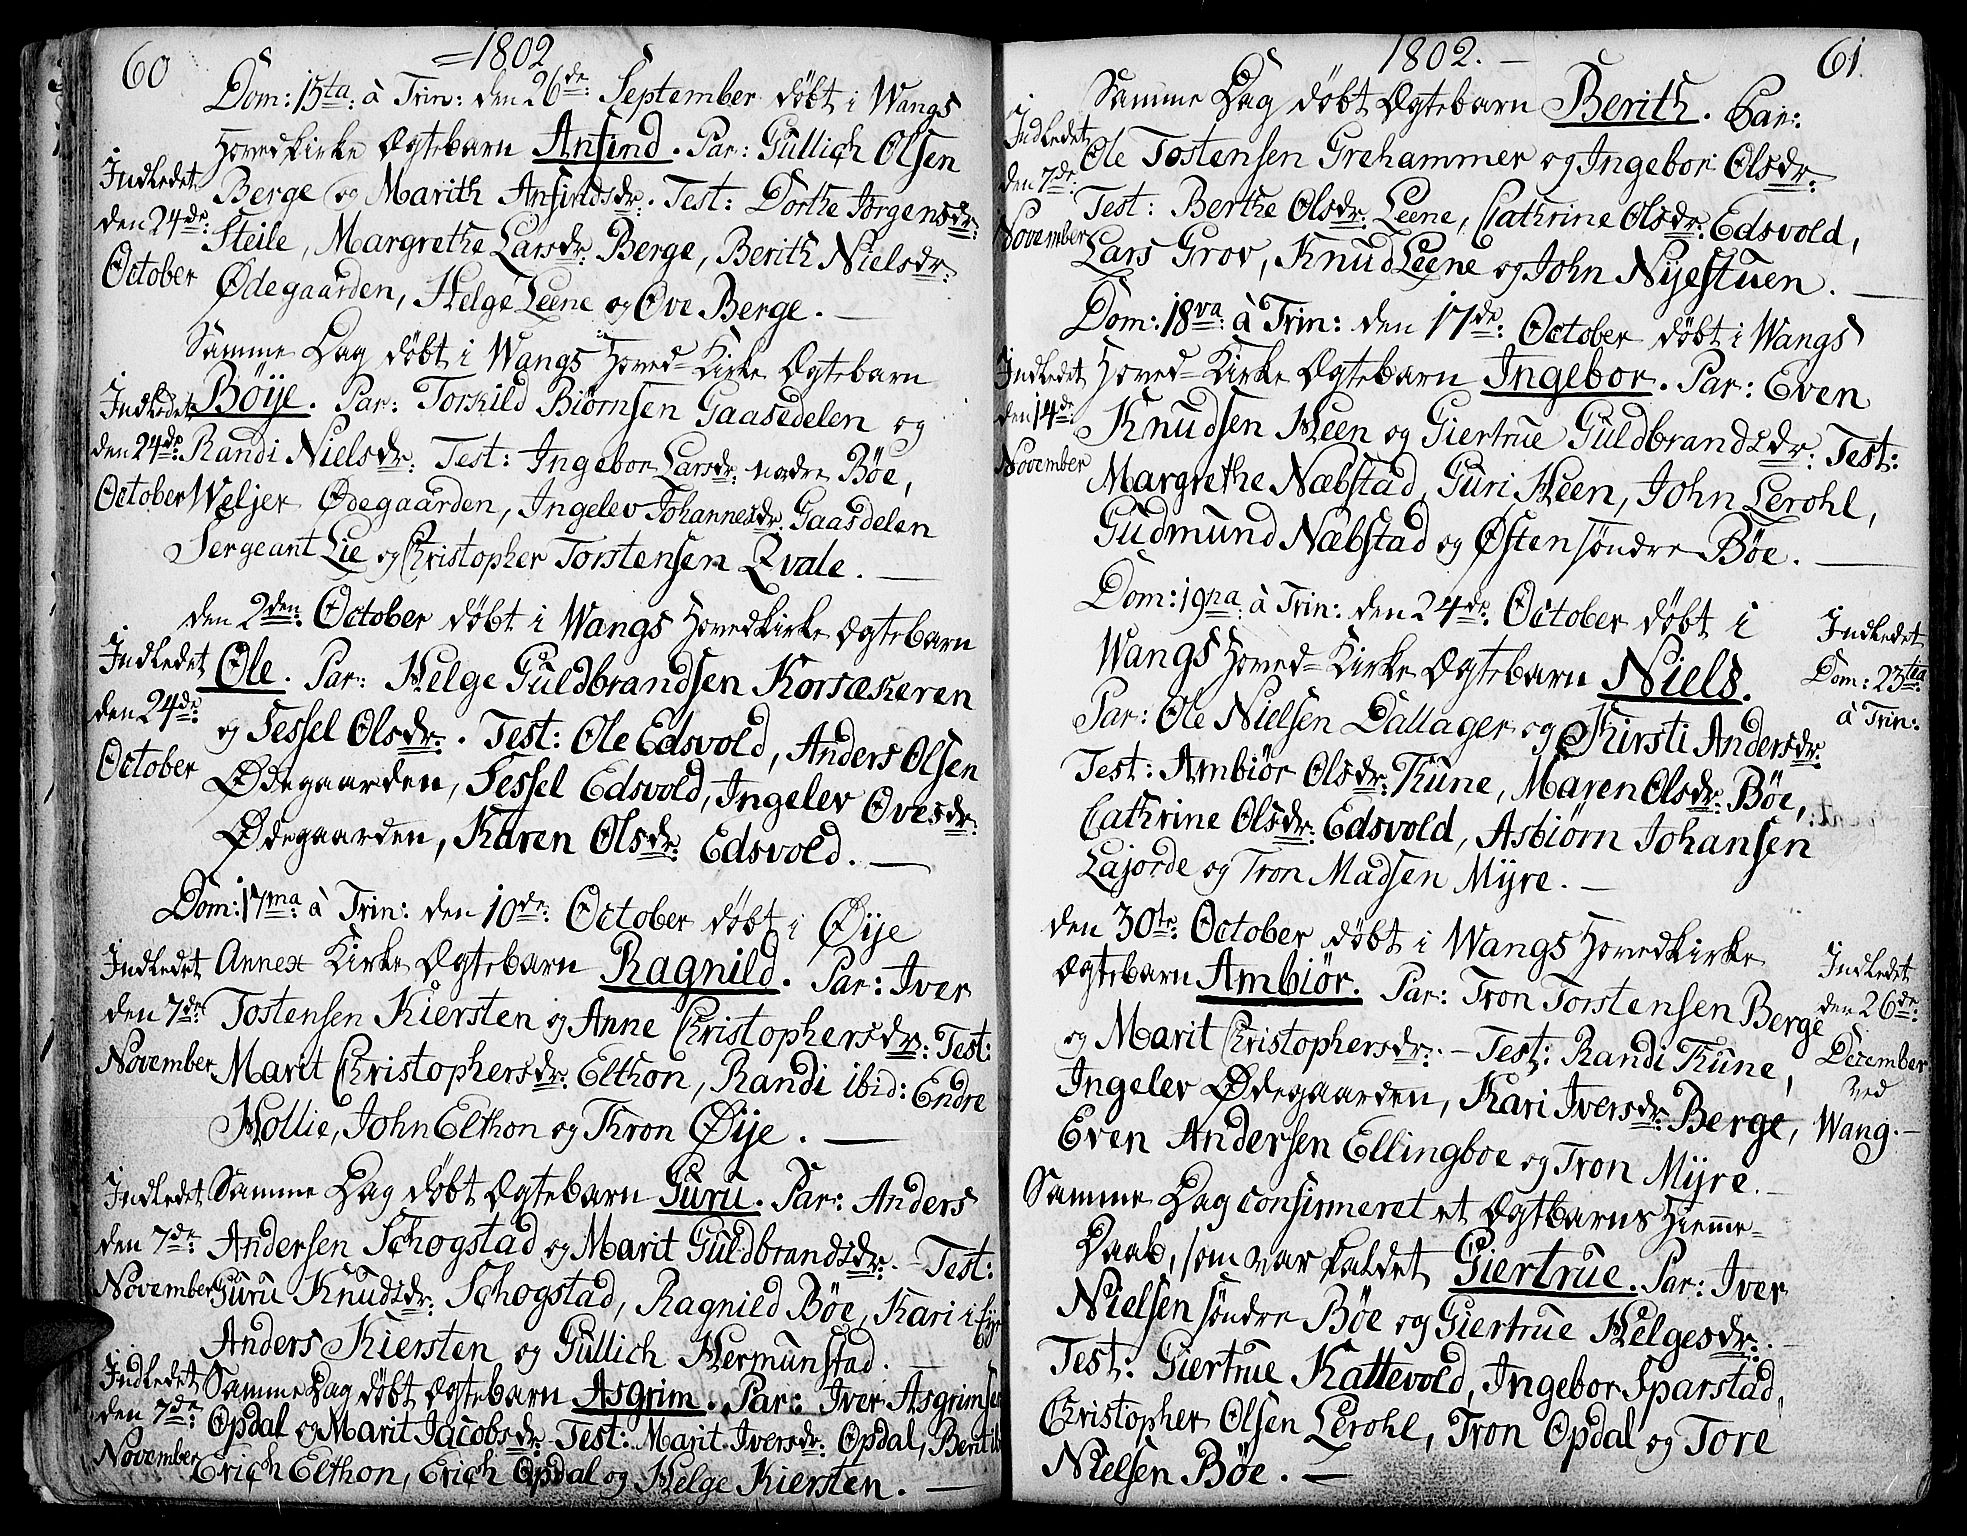 60
=1802
Dom: 15ta: à Trin: den 26de September döbt i Wangs
Hovedkirke Ægtebarn Ansind. Par: Gullich Olsen
Berge og Marith Ansindsdr. Test: Dorthe Jörgensdr:
Steile, Margrethe Larsdr: Berge, Berith Nielsdr:
Ødegaarden, Helge Leene og Ove Berge. —
Indledet
den 24de:
October
Samme Dag döbt i Wangs Hoved-Kirke Ægtebarn
Böije. Par: Torkild Biörnsen Gaasedelen og
Randi Nielsdr: Test: Ingebor Larsdr: nordre Böe,
Weljer Ødegaarden, Ingelev Johannesdr: Gaasdelen
Sergeant Lie og Christopher Torstensen Qvale. —
Indledet
den 24de:
October
den 2den: October döbt i Wangs Hovedkirke Ægtebarn
Ole. Par: Helge Guldbrandsen Korsækeren
og Sessel Olsdr: . Test: Ole Edsvold, Anders Olsen
Ødegaarden, Sessel Edsvold, Ingelev Ovesdr:
Ødegaarden, Karen Olsdr: Edsvold. —
Indledet
den 24de:
October
Dom: 17ma: à Trin: den 10de: October döbt i Øije
Annex Kirke Ægtebarn Ragnild. Par: Iver
Tostensen Kiersten og Anne Christophersdr: Test:
Marit Christophersdr: Elthon, Randi ibid: Endre
Hollie, John Elthon og Thron Øije. —
Indledet
den 7de:
November
Samme Dag döbt Ægtebarn Guru. Par: Anders
Andersen Schogstad og Marit Guldbrandsdr. - Test:
Guru Knudsdr: Schogstad, Ragnild Böe, Kari i
Anders Kiersten og Gullich Hermunstad. —
Indledet
den 7de:
November
Samme Dag döbt Ægtebarn Asgrim. Par: Iver Asgrimsen
Opdal og Marit Jacobsdr. Test: Marit Iversdr: Opdal, Berit
Erich Elthon, Erich Opdal og Helge Kiersten. —
Indledet
den 7de:
November
1802. —
61.
Samme Dag döbt Ægtebarn Berith. Par:
Ole Tostensen Grehammer og Ingebor Olsdr:
Test: Berthe Olsdr: Leene, Cathrine Olsdr: Edsvold,
Lars Grov, Knud Leene og John Nyestuen. —
Indledet
den 7de:
November
Dom: 18va: à Trin: den 17de: October döbt i Wangs
Hoved-Kirke Ægtebarn Ingebor. Par: Even
Knudsen Heen og Giertrue Guldbrandsdr: Test:
Margrethe Næbstad, Guri Heen, John Lerohl,
Gudmund Næbstad og Østen söndre Böe. —
Indledet
den 14de:
November
Dom: 19na: à Trin: den 24de: October döbt i
Wangs Hoved-Kirke Ægtebarn Niels.
Par: Ole Nielsen Dallager og Kirsti Andersdr:
Test: Ambiör Olsdr: Kune, Maren Olsdr: Böe,
Cathrine Olsdr: Edsvold, Asbiörn Johansen
Lajorde og Tron Madsen Myre. —
Indledet
Dom: 23tia:
à Trin:
den 30te: October döbt i Wangs Hovedkirke
Ægtebarn Ambiör. Par: Tron Torstensen Berge
og Marit Christophersdr: - Test: Randi Kune,
Ingelev Ødegaarden, Kari Iversdr: Berge,
Even Andersen Ellingboe og Tron Myre. -
Indledet
den 26de:
December
ved
Wang. -
Samme Dag confirmeret et Ægtbarns Hieme-
Daab, som var kaldet Giertrue. Par: Iver
Nielsen söndre Böe og Giertrue Helgesdr: .
Test: Giertrue Kattevold, Ingebor Sparstad,
Christopher Olsen Lerohl, Tron Opdal og Tore
Nielsen Böe. —